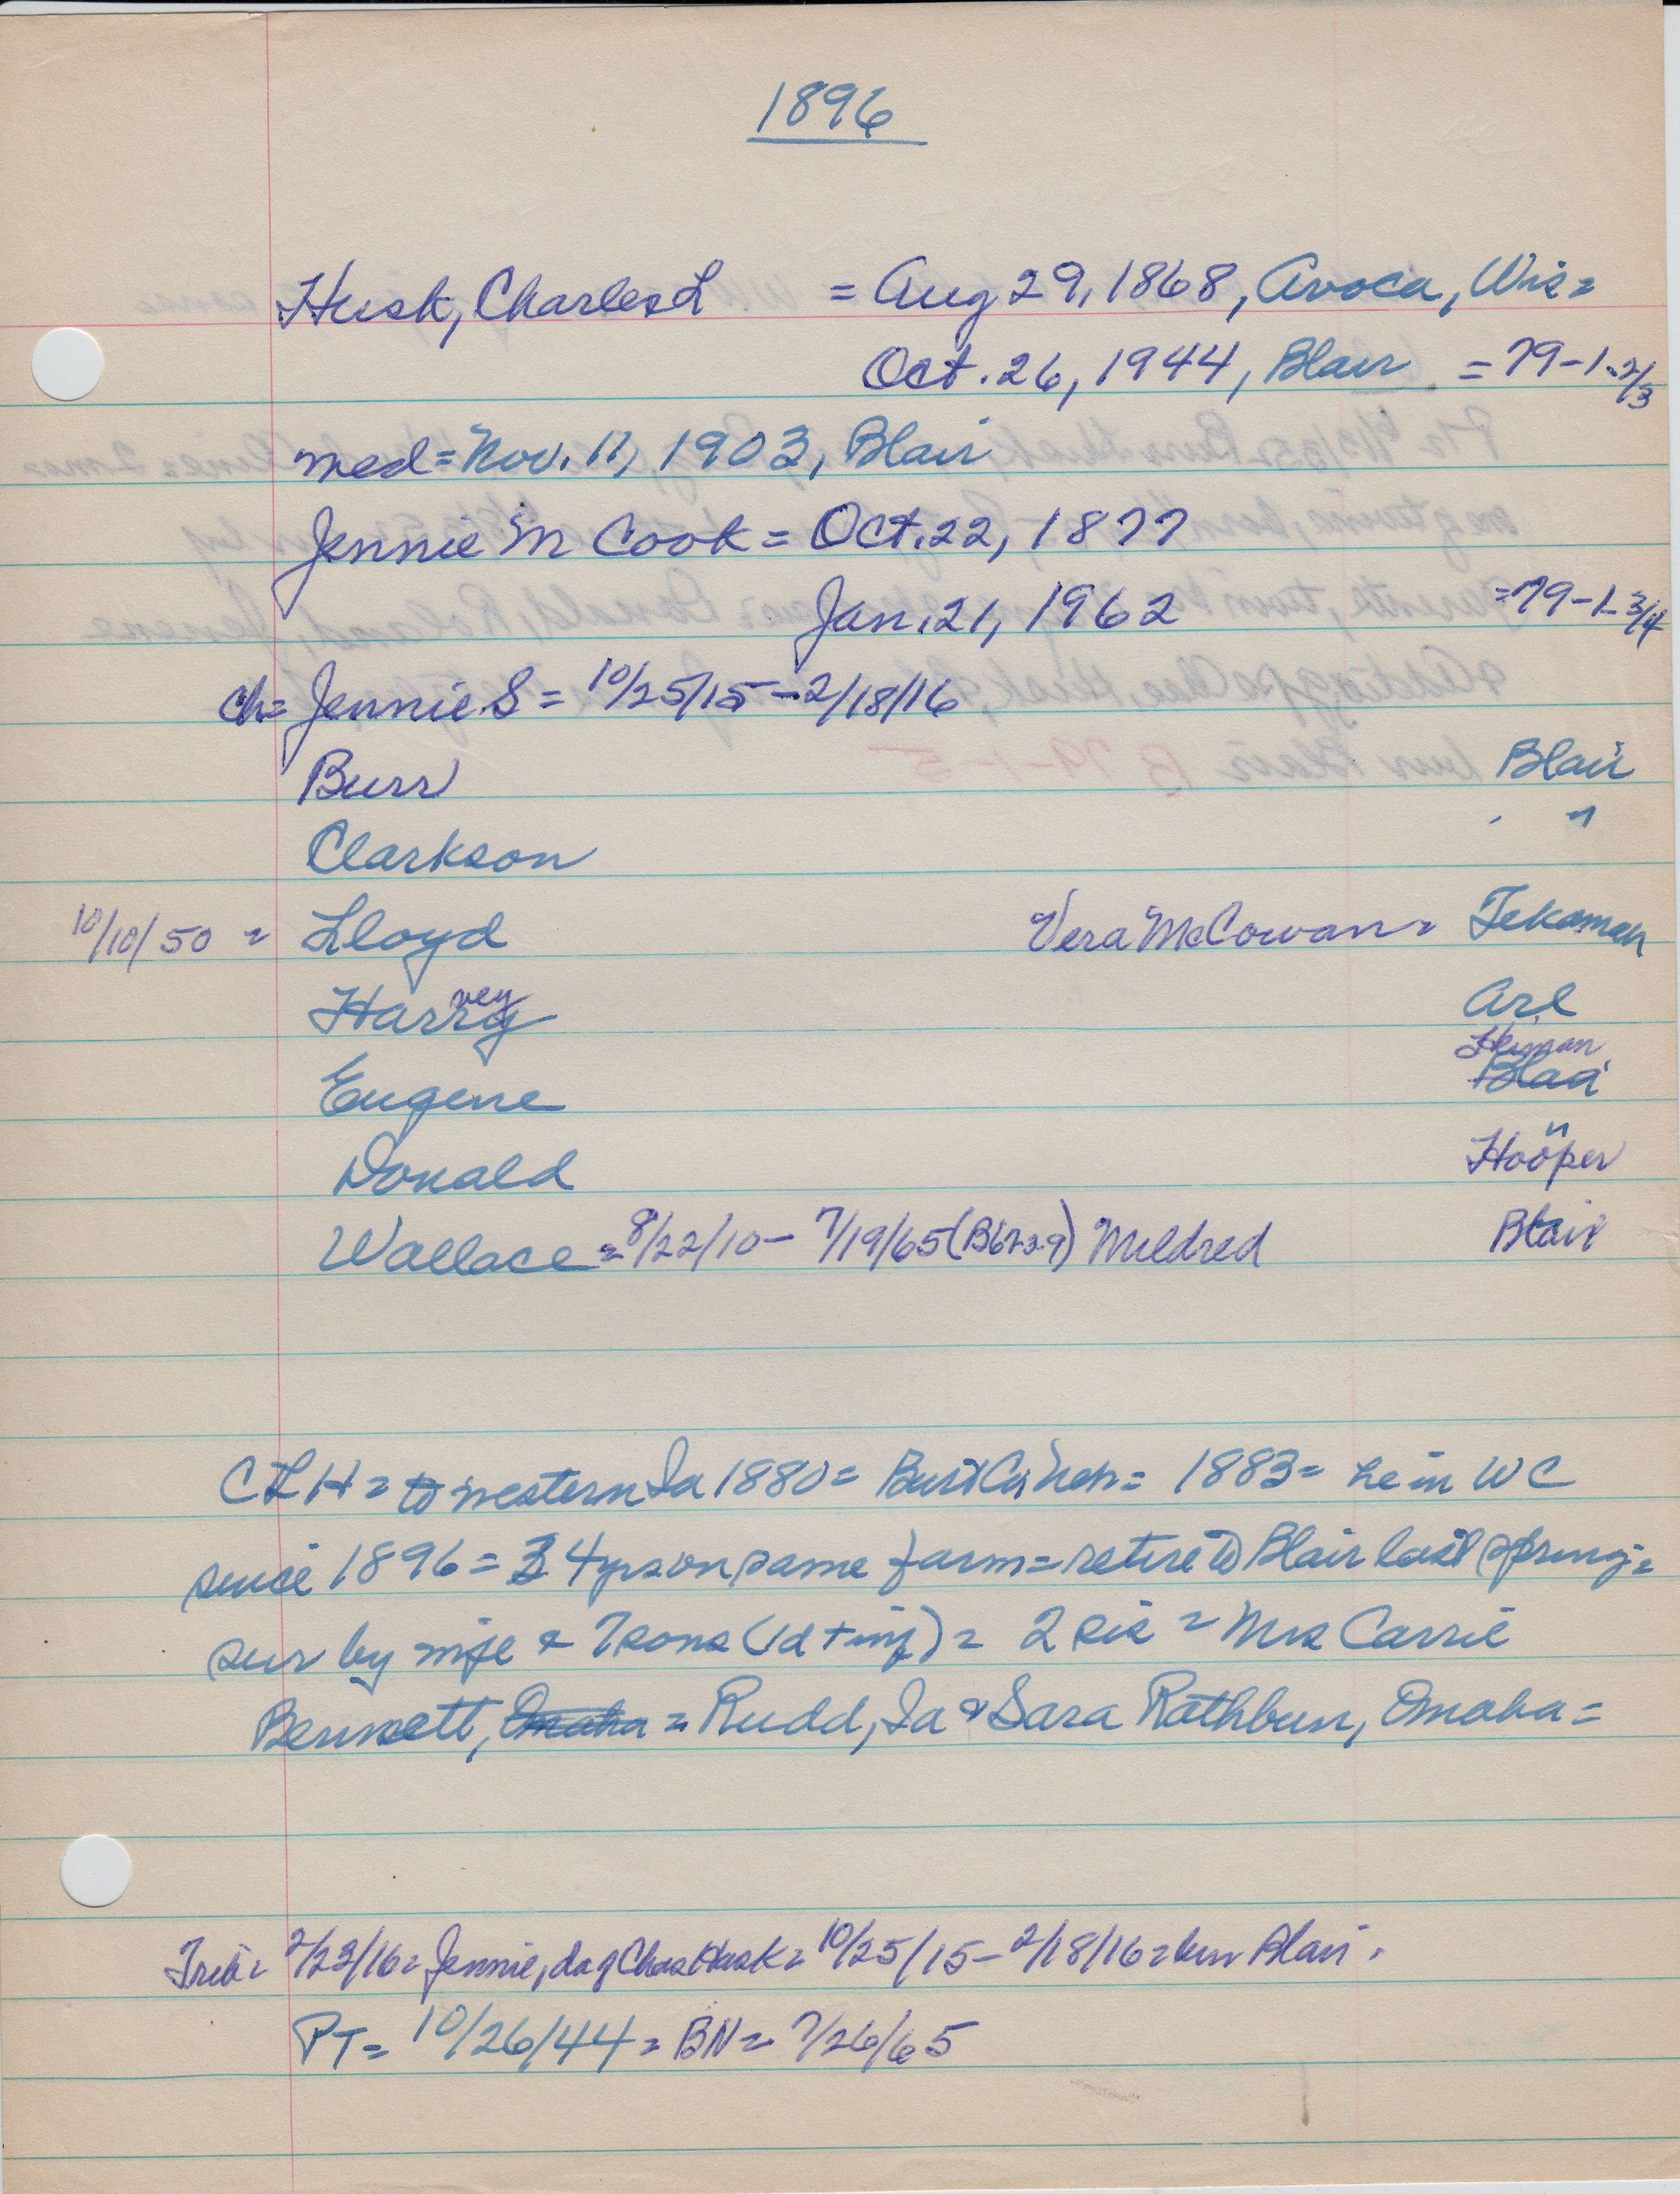 1896
Husk, Charles L = Aug 29, 1868, Avoca, Wis =
Oct. 26, 1944, Blair = 79-1-2/3
med = Nov. 11, 1903, Blair
Jennie M Cook = Oct. 22, 1877
Jan. 21, 1962 = 79-1-3/4
ch = Jennie S = 10/25/15 - 2/18/16
Burr Blair
Clarkson " "
10/10/50 = Lloyd Vera McCowan = Tekamah
Harry vey Arl
Eugene Herman Blair
Donald " Hooper
Wallace = 8/22/10 - 7/19/65 (B62-2-9) Mildred Blair
CLH = to western Ia 1880 = Burt Co, Neb = 1883 = he in WC
since 1896 = 34 yrs on same farm = retire to Blair last spring =
sur by wife & 7 sons (1d + inf) = 2 sis = Mrs Carrie
Bennett, Omaha = Rudd, Ia & Sara Rathbun, Omaha =
Trib = 2/23/16 = Jennie, da of Chas Husk = 10/25/15 - 2/18/16 = bur Blair.
PT = 10/26/44 = BN = 7/26/65